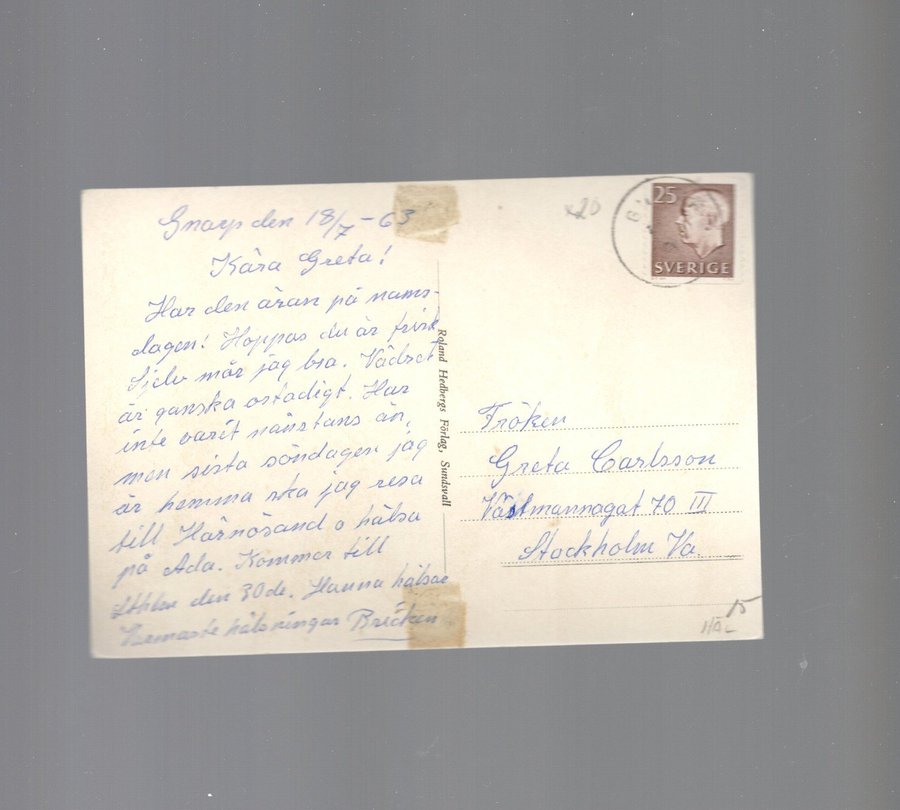 Gnarp den 18/7 - 63
Kära Greta!
Har den äran på nams-
dagen! Hoppas du är frisk
Sjelv mår jag bra. Vädret
är ganska ostadigt. Har
inte varit nånstans än,
men sista söndagen jag
är hemma ska jag resa
till Härnösand o hälsa
på Ada. Kommer till
Sthlm den 30de. Hanna hälsar
Varmaste hälsningar Bricken
Roland Hedbergs Förlag, Sundsvall
x20
25
SVERIGE
Fröken
Greta Carlsson
Västmannagat 70 III
Stockholm Va.
15